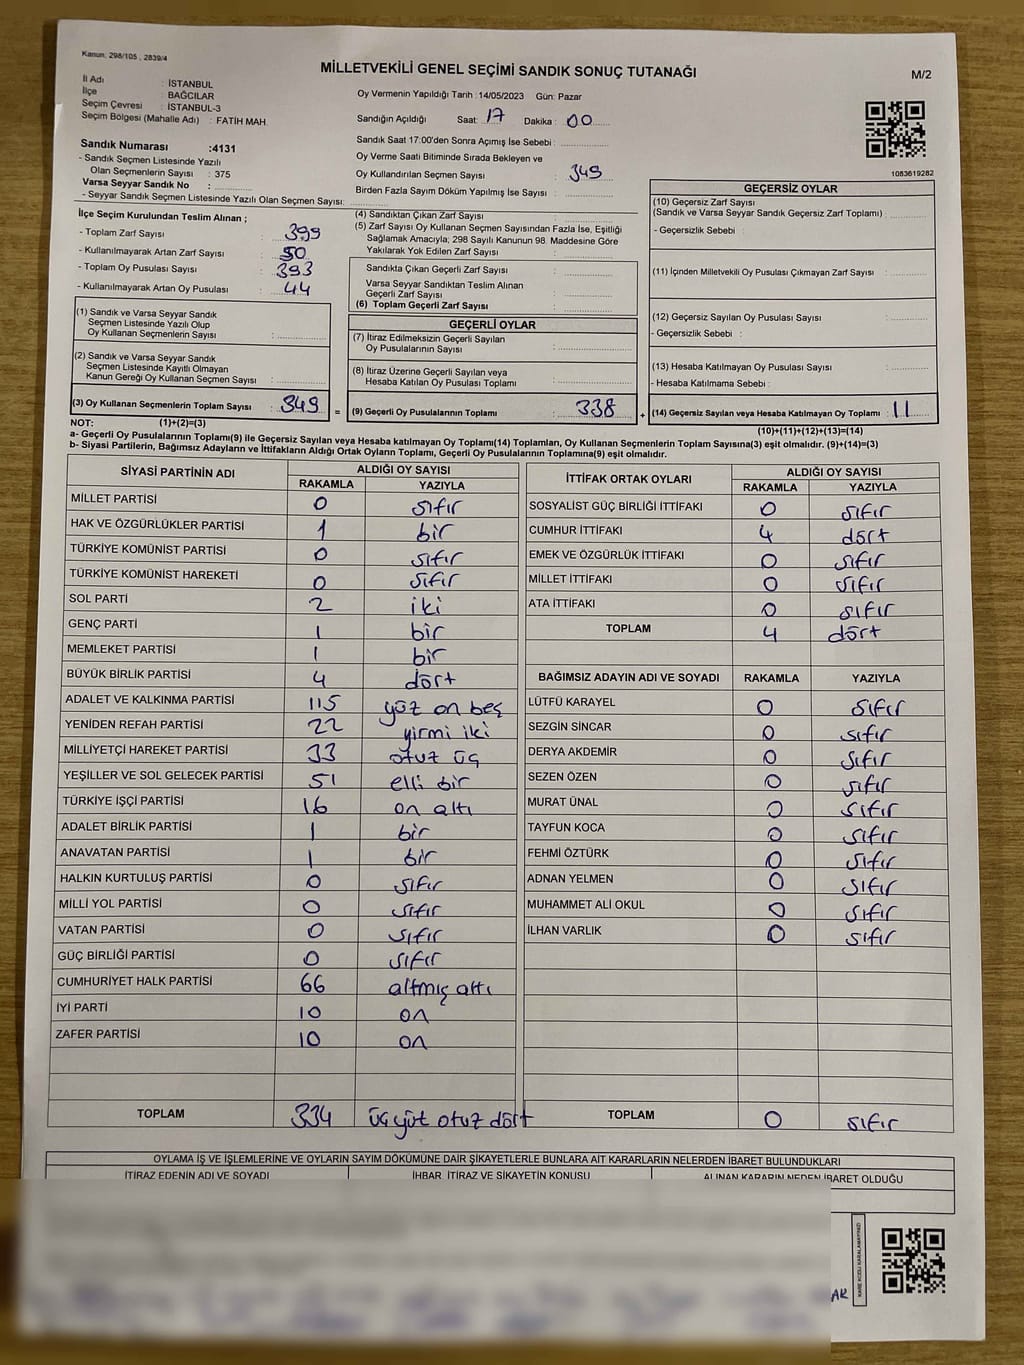 Kanun: 298/105 , 2839/4
MİLLETVEKİLİ GENEL SEÇİMİ SANDIK SONUÇ TUTANAĞI
M/2
İl Adı : İSTANBUL
İlçe : BAĞCILAR
Seçim Çevresi : İSTANBUL-3
Seçim Bölgesi (Mahalle Adı) : FATİH MAH.
Sandık Numarası :4131
- Sandık Seçmen Listesinde Yazılı
Olan Seçmenlerin Sayısı : 375
Varsa Seyyar Sandık No :
- Seyyar Sandık Seçmen Listesinde Yazılı Olan Seçmen Sayısı:
Oy Vermenin Yapıldığı Tarih :14/05/2023 Gün: Pazar
Sandığın Açıldığı Saat: 17 Dakika : 00
Sandık Saat 17:00'den Sonra Açımış İse Sebebi :
Oy Verme Saati Bitiminde Sırada Bekleyen ve
Oy Kullandırılan Seçmen Sayısı 349
Birden Fazla Sayım Döküm Yapılmış İse Sayısı :
1083619282
İlçe Seçim Kurulundan Teslim Alınan ;
- Toplam Zarf Sayısı : 399
- Kullanılmayarak Artan Zarf Sayısı : 50
- Toplam Oy Pusulası Sayısı : 393
- Kullanılmayarak Artan Oy Pusulası : 44
(1) Sandık ve Varsa Seyyar Sandık
Seçmen Listesinde Yazılı Olup
Oy Kullanan Seçmenlerin Sayısı :
(2) Sandık ve Varsa Seyyar Sandık
Seçmen Listesinde Kayıtlı Olmayan
Kanun Gereği Oy Kullanan Seçmen Sayısı :
(3) Oy Kullanan Seçmenlerin Toplam Sayısı : 349 =
(4) Sandıktan Çıkan Zarf Sayısı :
(5) Zarf Sayısı Oy Kullanan Seçmen Sayısından Fazla İse, Eşitliği
Sağlamak Amacıyla; 298 Sayılı Kanunun 98. Maddesine Göre
Yakılarak Yok Edilen Zarf Sayısı :
Sandıkta Çıkan Geçerli Zarf Sayısı :
Varsa Seyyar Sandıktan Teslim Alınan
Geçerli Zarf Sayısı :
(6) Toplam Geçerli Zarf Sayısı :
GEÇERLİ OYLAR
(7) İtiraz Edilmeksizin Geçerli Sayılan
Oy Pusulalarının Sayısı :
(8) İtiraz Üzerine Geçerli Sayılan veya
Hesaba Katılan Oy Pusulası Toplamı :
(9) Geçerli Oy Pusulalarının Toplamı : 338 +
GEÇERSİZ OYLAR
(10) Geçersiz Zarf Sayısı
(Sandık ve Varsa Seyyar Sandık Geçersiz Zarf Toplamı) :
- Geçersizlik Sebebi :
(11) İçinden Milletvekili Oy Pusulası Çıkmayan Zarf Sayısı :
(12) Geçersiz Sayılan Oy Pusulası Sayısı :
- Geçersizlik Sebebi :
(13) Hesaba Katılmayan Oy Pusulası Sayısı :
- Hesaba Katılmama Sebebi :
(14) Geçersiz Sayılan veya Hesaba Katılmayan Oy Toplamı : 11
NOT: (1)+(2)=(3) (10)+(11)+(12)+(13)=(14)
a- Geçerli Oy Pusulalarının Toplamı(9) ile Geçersiz Sayılan veya Hesaba katılmayan Oy Toplamı(14) Toplamları, Oy Kullanan Seçmenlerin Toplam Sayısına(3) eşit olmalıdır. (9)+(14)=(3)
b- Siyasi Partilerin, Bağımsız Adayların ve İttifakların Aldığı Ortak Oyların Toplamı, Geçerli Oy Pusulalarının Toplamına(9) eşit olmalıdır.
SİYASİ PARTİNİN ADI ALDIĞI OY SAYISI
RAKAMLA YAZIYLA
MİLLET PARTİSİ 0 sıfır
HAK VE ÖZGÜRLÜKLER PARTİSİ 1 bir
TÜRKİYE KOMÜNİST PARTİSİ 0 sıfır
TÜRKİYE KOMÜNİST HAREKETİ 0 sıfır
SOL PARTİ 2 iki
GENÇ PARTİ 1 bir
MEMLEKET PARTİSİ 1 bir
BÜYÜK BİRLİK PARTİSİ 4 dört
ADALET VE KALKINMA PARTİSİ 115 yüz on beş
YENİDEN REFAH PARTİSİ 22 yirmi iki
MİLLİYETÇİ HAREKET PARTİSİ 33 otuz üç
YEŞİLLER VE SOL GELECEK PARTİSİ 51 elli bir
TÜRKİYE İŞÇİ PARTİSİ 16 on altı
ADALET BİRLİK PARTİSİ 1 bir
ANAVATAN PARTİSİ 1 bir
HALKIN KURTULUŞ PARTİSİ 0 sıfır
MİLLİ YOL PARTİSİ 0 sıfır
VATAN PARTİSİ 0 sıfır
GÜÇ BİRLİĞİ PARTİSİ 0 sıfır
CUMHURİYET HALK PARTİSİ 66 altmış altı
İYİ PARTİ 10 on
ZAFER PARTİSİ 10 on
TOPLAM 334 üç yüz otuz dört
İTTİFAK ORTAK OYLARI ALDIĞI OY SAYISI
RAKAMLA YAZIYLA
SOSYALİST GÜÇ BİRLİĞİ İTTİFAKI 0 sıfır
CUMHUR İTTİFAKI 4 dört
EMEK VE ÖZGÜRLÜK İTTİFAKI 0 sıfır
MİLLET İTTİFAKI 0 sıfır
ATA İTTİFAKI 0 sıfır
TOPLAM 4 dört
BAĞIMSIZ ADAYIN ADI VE SOYADI RAKAMLA YAZIYLA
LÜTFÜ KARAYEL 0 sıfır
SEZGİN SİNCAR 0 sıfır
DERYA AKDEMİR 0 sıfır
SEZEN ÖZEN 0 sıfır
MURAT ÜNAL 0 sıfır
TAYFUN KOCA 0 sıfır
FEHMİ ÖZTÜRK 0 sıfır
ADNAN YELMEN 0 sıfır
MUHAMMET ALİ OKUL 0 sıfır
İLHAN VARLIK 0 sıfır
TOPLAM 0 sıfır
OYLAMA İŞ VE İŞLEMLERİNE VE OYLARIN SAYIM DÖKÜMÜNE DAİR ŞİKAYETLERLE BUNLARA AİT KARARLARIN NELERDEN İBARET BULUNDUKLARI
İTİRAZ EDENİN ADI VE SOYADI İHBAR, İTİRAZ VE ŞİKAYETİN KONUSU ALINAN KARARIN NEDEN İBARET OLDUĞU
KARE KODU KARALAMAYINIZ!
AK